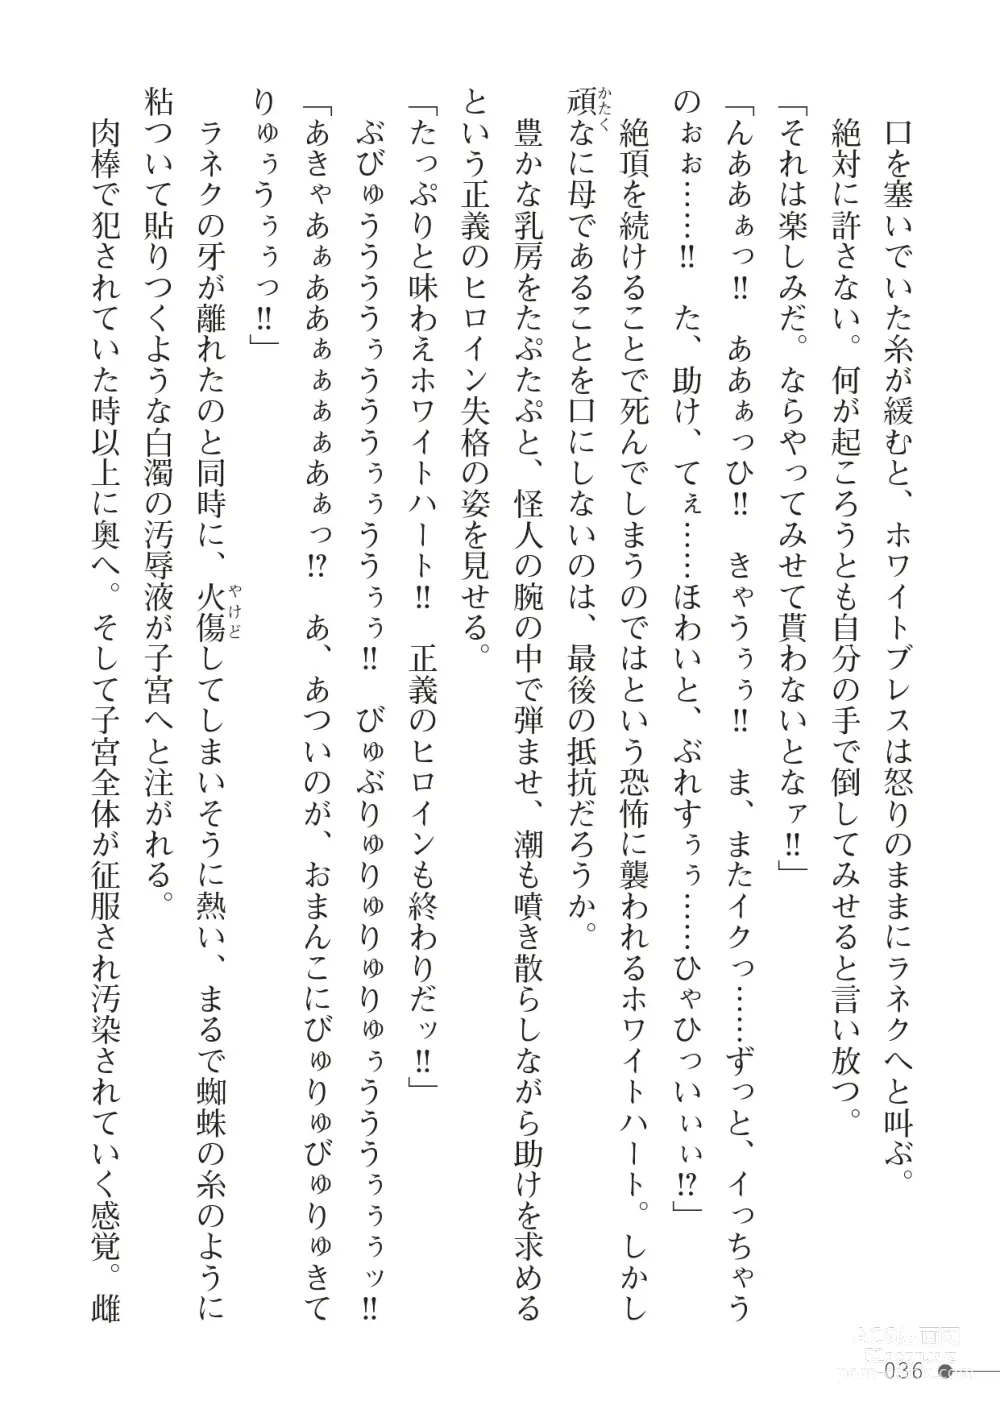 口を塞いでいた糸が緩むと、ホワイトブレスは怒りのままにラネクへと叫ぶ。
絶対に許さない。何が起ころうとも自分の手で倒してみせると言い放つ。
「それは楽しみだ。ならやってみせて貰わないとなァ‼」
「んああぁっ‼　ああぁっひ‼　きゃうぅぅ‼　ま、またイクっ……ずっと、イっちゃう
のぉぉ……‼　た、助け、てぇ……ほわいと、ぶれすぅぅ……ひゃひっいぃぃ⁉」
絶頂を続けることで死んでしまうのではという恐怖に襲われるホワイトハート。しかし
頑なに母であることを口にしないのは、最後の抵抗だろうか。
豊かな乳房をたぷたぷと、怪人の腕の中で弾ませ、潮も噴き散らしながら助けを求める
という正義のヒロイン失格の姿を見せる。
「たっぷりと味わえホワイトハート‼　正義のヒロインも終わりだッ‼」
ぶびゅうううぅうううぅぅううぅぅ‼　びゅぶりゅりゅりゅりゅぅうううぅぅぅッ‼
「あきゃあぁああぁぁぁあぁっ⁉　あ、あついのが、おまんこにびゅりゅびゅりゅきて
りゅぅうぅぅっ‼」
ラネクの牙が離れたのと同時に、火傷してしまいそうに熱い、まるで蜘蛛の糸のように
粘ついて貼りつくような白濁の汚辱液が子宮へと注がれる。
肉棒で犯されていた時以上に奥へ。そして子宮全体が征服され汚染されていく感覚。雌
036